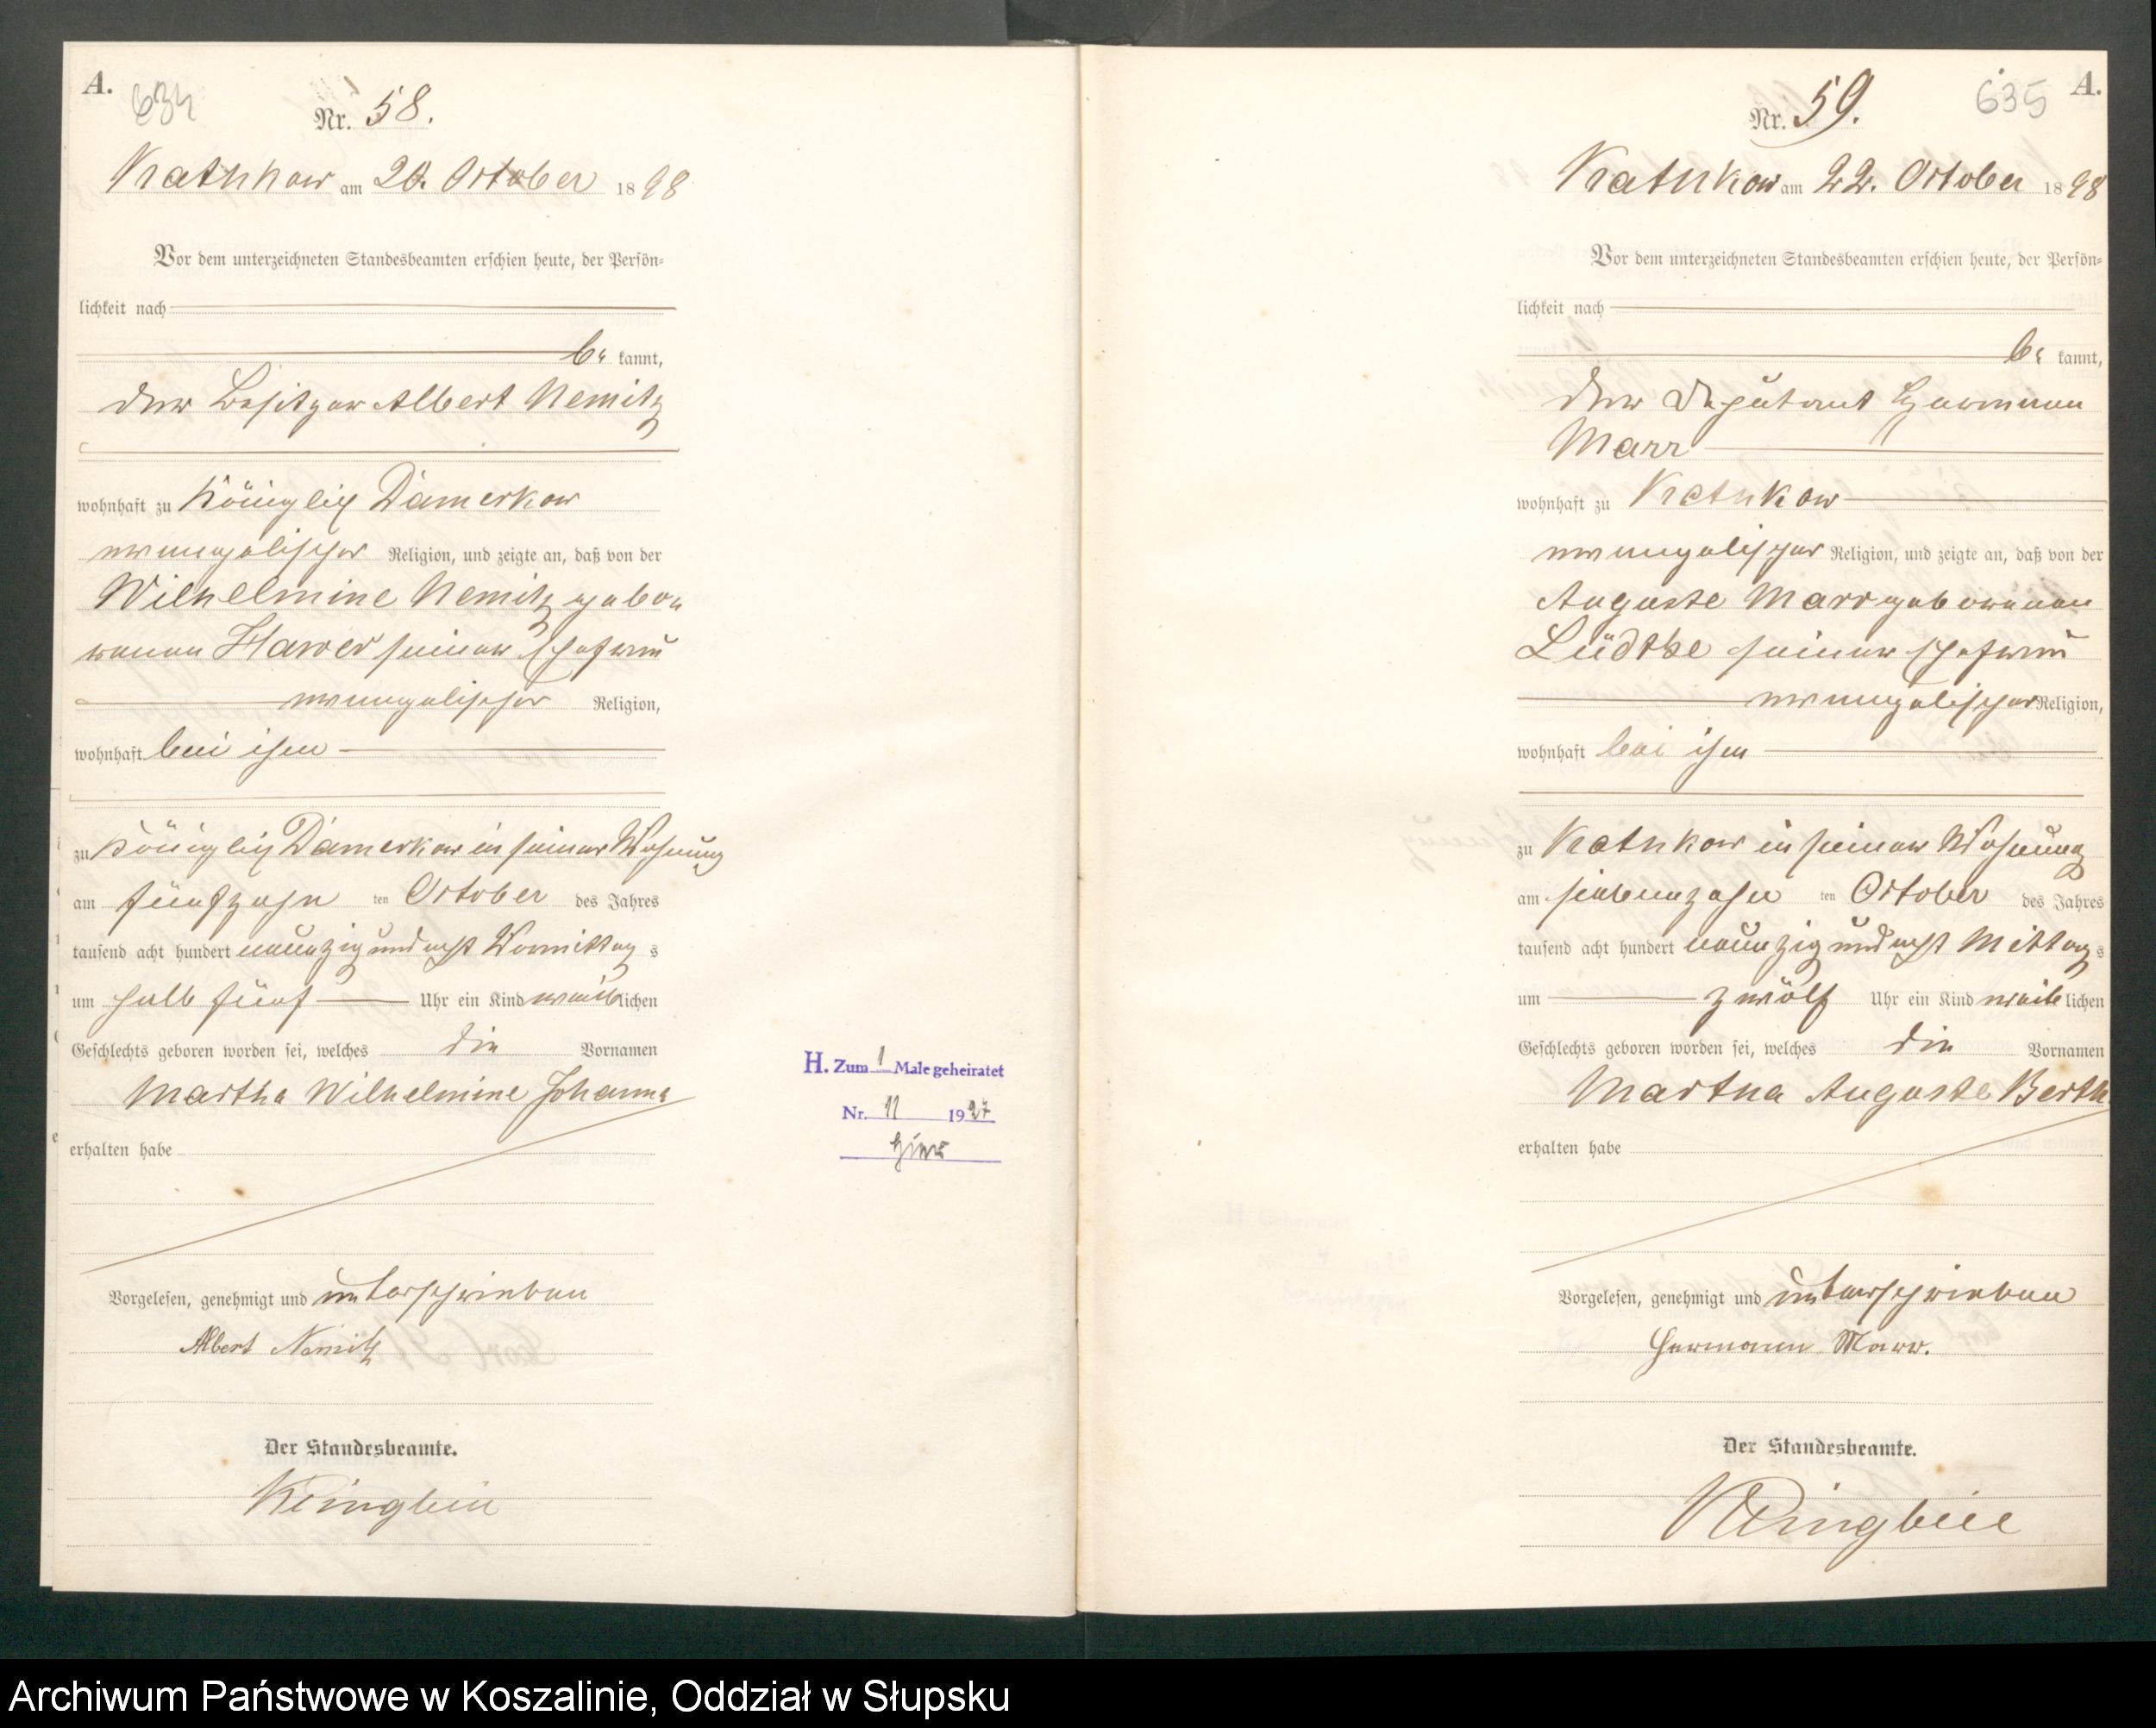 A.
634
Nr. 58.
Krathkow am 20. October 1898
Vor dem unterzeichneten Standesbeamten erschien heute, der Persön-
lichkeit nach
be kannt,
der Besitzer Albert Nemitz
wohnhaft zu Königlich Damerkow
evangelischer Religion, und zeigte an, daß von der
Wilhelmine Nemitz gebor
renen Harver seiner Ehefrau
evangelischer Religion,
wohnhaft bei ihm
zu Königlich Damerkow in seiner Wohnung
am fünfzehn ten October des Jahres
tausend acht hundert neunzig und acht Vormittag s
um halb fünf Uhr ein Kind weiblichen
Geschlechts geboren worden sei, welches die Vornamen
Martha Wilhelmine Johanna
erhalten habe
Vorgelesen, genehmigt und unterschrieben
Albert Nemitz
Der Standesbeamte.
Klingbeil
H. Zum 1 Male geheiratet
Nr. 11 1927
hier
635
A.
Nr. 59.
Krathkow am 22. October 1898
Vor dem unterzeichneten Standesbeamten erschien heute, der Persön-
lichkeit nach
be kannt,
der Deputant Hermann
Marr
wohnhaft zu Krathkow
evangelischer Religion, und zeigte an, daß von der
Auguste Marr geborenen
Lüdtke seiner Ehefrau
evangelischer Religion,
wohnhaft bei ihm
zu Krathkow in seiner Wohnung
am siebenzehn ten October des Jahres
tausend acht hundert neunzig und acht Mittag s
um zwölf Uhr ein Kind weiblichen
Geschlechts geboren worden sei, welches die Vornamen
Martha Auguste Bertha
erhalten habe
Vorgelesen, genehmigt und unterschrieben
Hermann Marr.
Der Standesbeamte.
Klingbeil
Archiwum Państwowe w Koszalinie, Oddział w Słupsku